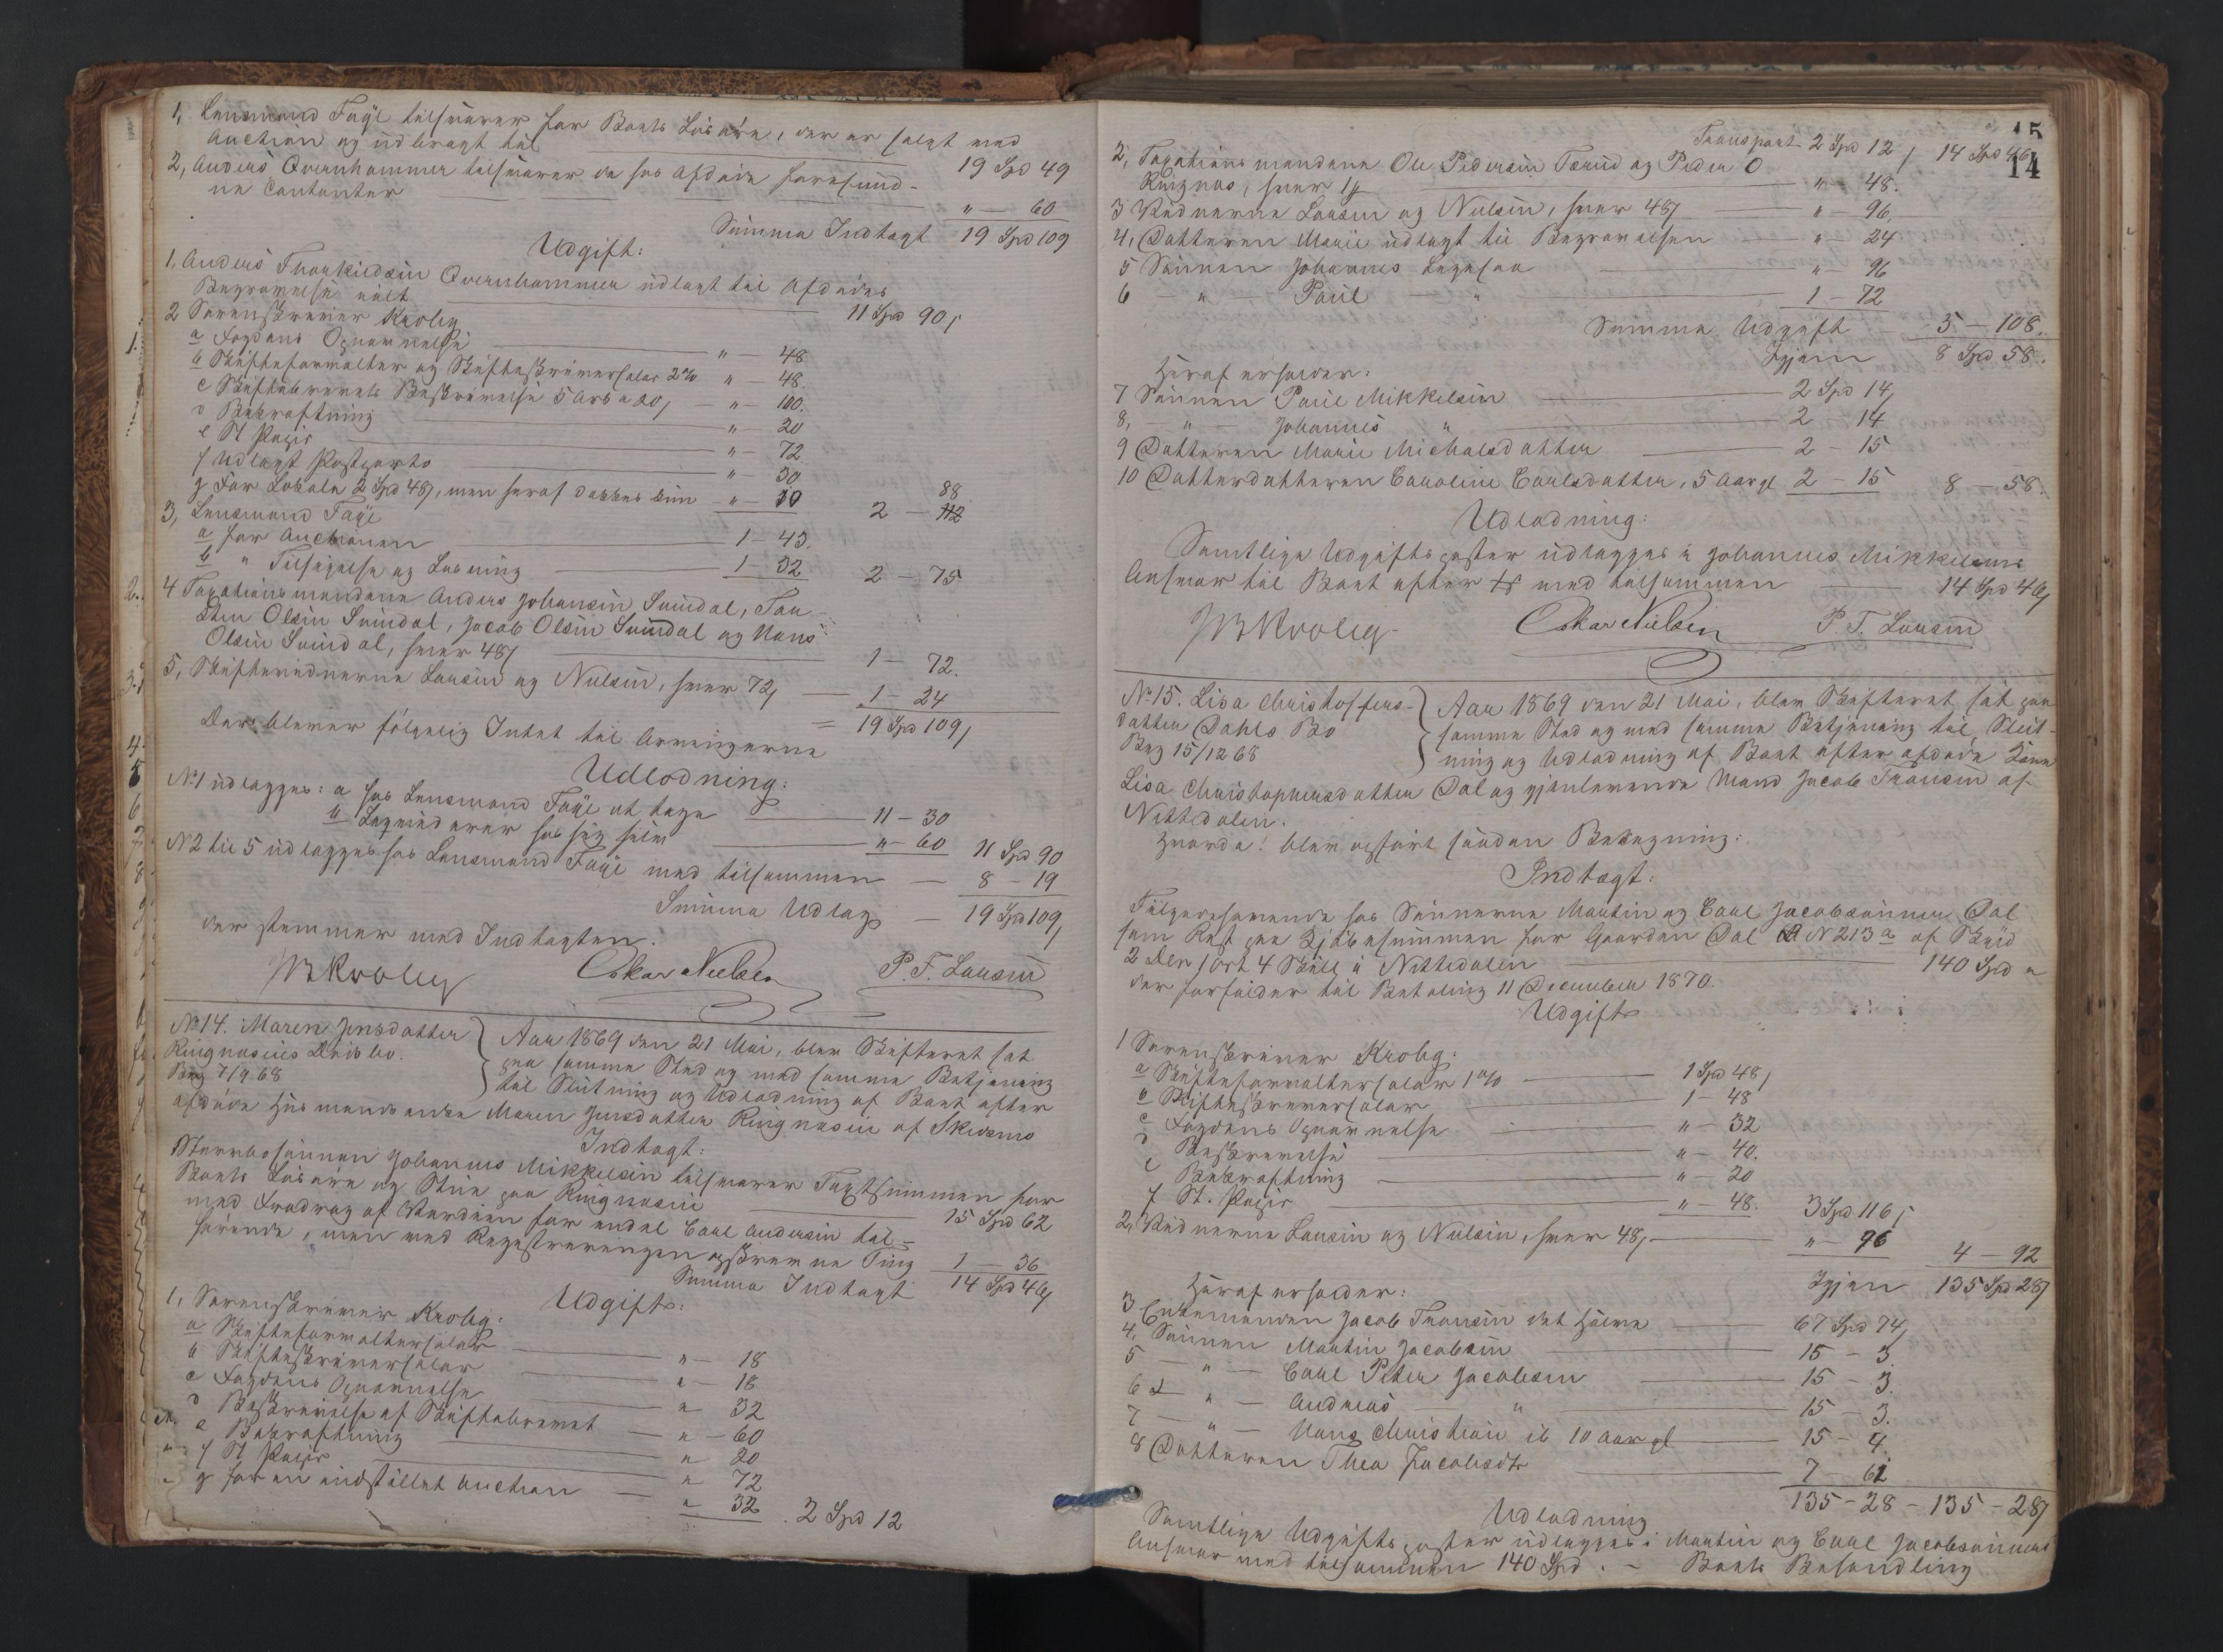 1, Lensmand Faye tilsvarer for Boets Løsøre, der er solgt ved
Auction og udbragt til 19 Spd 49
2, Anders Qvernhammer tilsvarer de hos Afdøde forefund-
ne Contanter " — 60
Summa Indtægt 19 Spd 109
Udgift:
1, Anders Thorkildsen Qvernhammer udlagt til Afdødes
Begravelse 11 Spd 90,
2 Sorenskriver Krohg
a Fogdens Opnævnelse " — 48
b Skifteforvalter og Skifteskriversalær 2% " — 48.
c Skiftebrevets Beskrivelse 5 Ark a 20, " — 100.
d Bekræftning " — 20
e St Papir " — 72
f Udlagt Postporto " 30
g For Lokale 2 Spd 48, men heraf dækkes kun " — 39 2 — 88
3, Lensmand Faye
a for Auctionen 1 — 43.
b " Tilsigelse og Løsning 1 — 32 2 — 75
4 Taxationsmændene Anders Johansen Svindal, Tor-
sten Olsen Svindal, Jacob Olsen Svindal og Hans
Olsen Svindal, hver 48, 1 — 72.
5, Skiftevidnerne Larsen og Nielsen, hver 72, 1 — 24
= 19 Spd 109,
Der bliver følgelig Intet til Arvingerne
Udlodning:
No 1 udlægges: a hos Lensmand Faye at tage 11 — 30
b hos sig selv " — 60 11 Spd 90
N 2 til 5 udlægges hos Lensmand Faye med tilsammen — 8 — 19
Summa Udlæg — 19 Spd 109,
der stemmer med Indtægten.
Krohg Oskar Nielsen P. F. Larsen
No 14. Maren Jensdatter
Ringnæseies Dødsbo.
Beg 7/9 68
Aar 1869 den 21 Mai, blev Skifteret sat
paa samme Sted og med samme Betjening
til Slutning og Udlodning af Boet efter
afdøde Husmandsenke Maren Jensdatter Ringnæseie af Skedsmo
Indtægt:
Stervbosønnen Johannes Mikkelsen tilsvarer Taxtsummen for
Boets Løsøre og Stue paa Ringnæseie 15 Spd 62
med Fradrag af Værdien for endel Carl Andersen til-
hørende, men ved Registreringen opskrevne Ting 1 — 36
Summa Indtægt 14 Spd 46,
Udgift:
1, Sorenskriver Krohg:
a Skifteforvaltersalær " — 18
b Skifteskriversalær " — 18
c Fogdens Opnævnelse " — 32
d Beskrivelse af Skiftebrevet " — 60
e Bekræftning " 20
f St Papir " 72
g for en indstillet Auction " 32 2 Spd 12
15
14
Transport 2 Spd 12, 14 Spd 46,
2, Taxationsmændene Ole Pedersen Tærud og Peder O
Ringnæs, hver " — 48.
3 Vidnerne Larsen og Nielsen, hver 48, " — 96.
4, Datteren Marie udlagt til Begravelsen " — 24
5 Sønnen Johannes ligesaa " — 96
6 — " — Poul " 1 — 72
Summa Udgift 5 — 108.
Igjen 8 Spd 58.
Heraf erholder:
7 Sønnen Poul Mikkelsen 2 Spd 14,
8, — " — Johannes " 2 14
9 Datteren Marie Michelsdatter 2 — 15
10 Datterdatteren Caroline Carlsdatter, 5 Aar gl 2 — 15 8 — 58.
Udlodning:
Samtlige Udgiftsposter udlægges i Johannes Mikkelsens
Ansvar til Boet med tilsammen 14 Spd 46,
Krohg Oskar Nielsen P. F. Larsen
No 15. Lisa Christoffers-
datter Dahls Bo
Beg 15/12 68
Aar 1869 den 21 Mai, blev Skifteret sat paa
samme Sted og med samme Betjening til Slut-
ning og Udlodning af Boet efter afdøde Kone
Lisa Christophersdatter Dal og gjenlevende Mand Jacob Thorsen af
Nittedalen.
Hvorda: blev opført saadan Beregning:
Indtægt:
Tilgodehavende hos Sønnerne Martin og Carl Jacobsønner Dal
som Rest paa Kjøbesummen for Gaarden Dal N 213 a af Skyld
2 Daler 1 ort 4 Skill i Nittedalen 140 Spd "
der forfalder til Betaling 11 December 1870.
Udgift
1 Sorenskriver Krohg:
a Skifteforvaltersalær 1% 1 Spd 48,
b Skifteskriversalær 1 — 48
c Fogdens Opnævnelse " — 32
d Beskrivelse " — 40.
e Bekræftning " — 20
f St. Papir " — 48. 3 Spd 116,
2, Vidnerne Larsen og Nielsen, hver 48, " — 96 4 — 92
Igjen 135 Spd 28,
Heraf erholder:
3 Enkemanden Jacob Thorsen det Halve 67 Spd 74,
4, Sønnen Martin Jacobsen 15 — 3.
5 — " — Carl Peter Jacobsen 15 — 3.
6 — " — Andreas " 15 — 3.
7 — " — Hans Christian ib 10 Aar gl 15 — 4.
8 Datteren Thea Jacobsdtr 7 61
135 — 28 — 135 — 28,
Udlodning
Samtlige Udgiftsposter udlægges i Martin og Carl Jacobsønners
Ansvar med tilsammen 140 Spd. — Boets Behandling